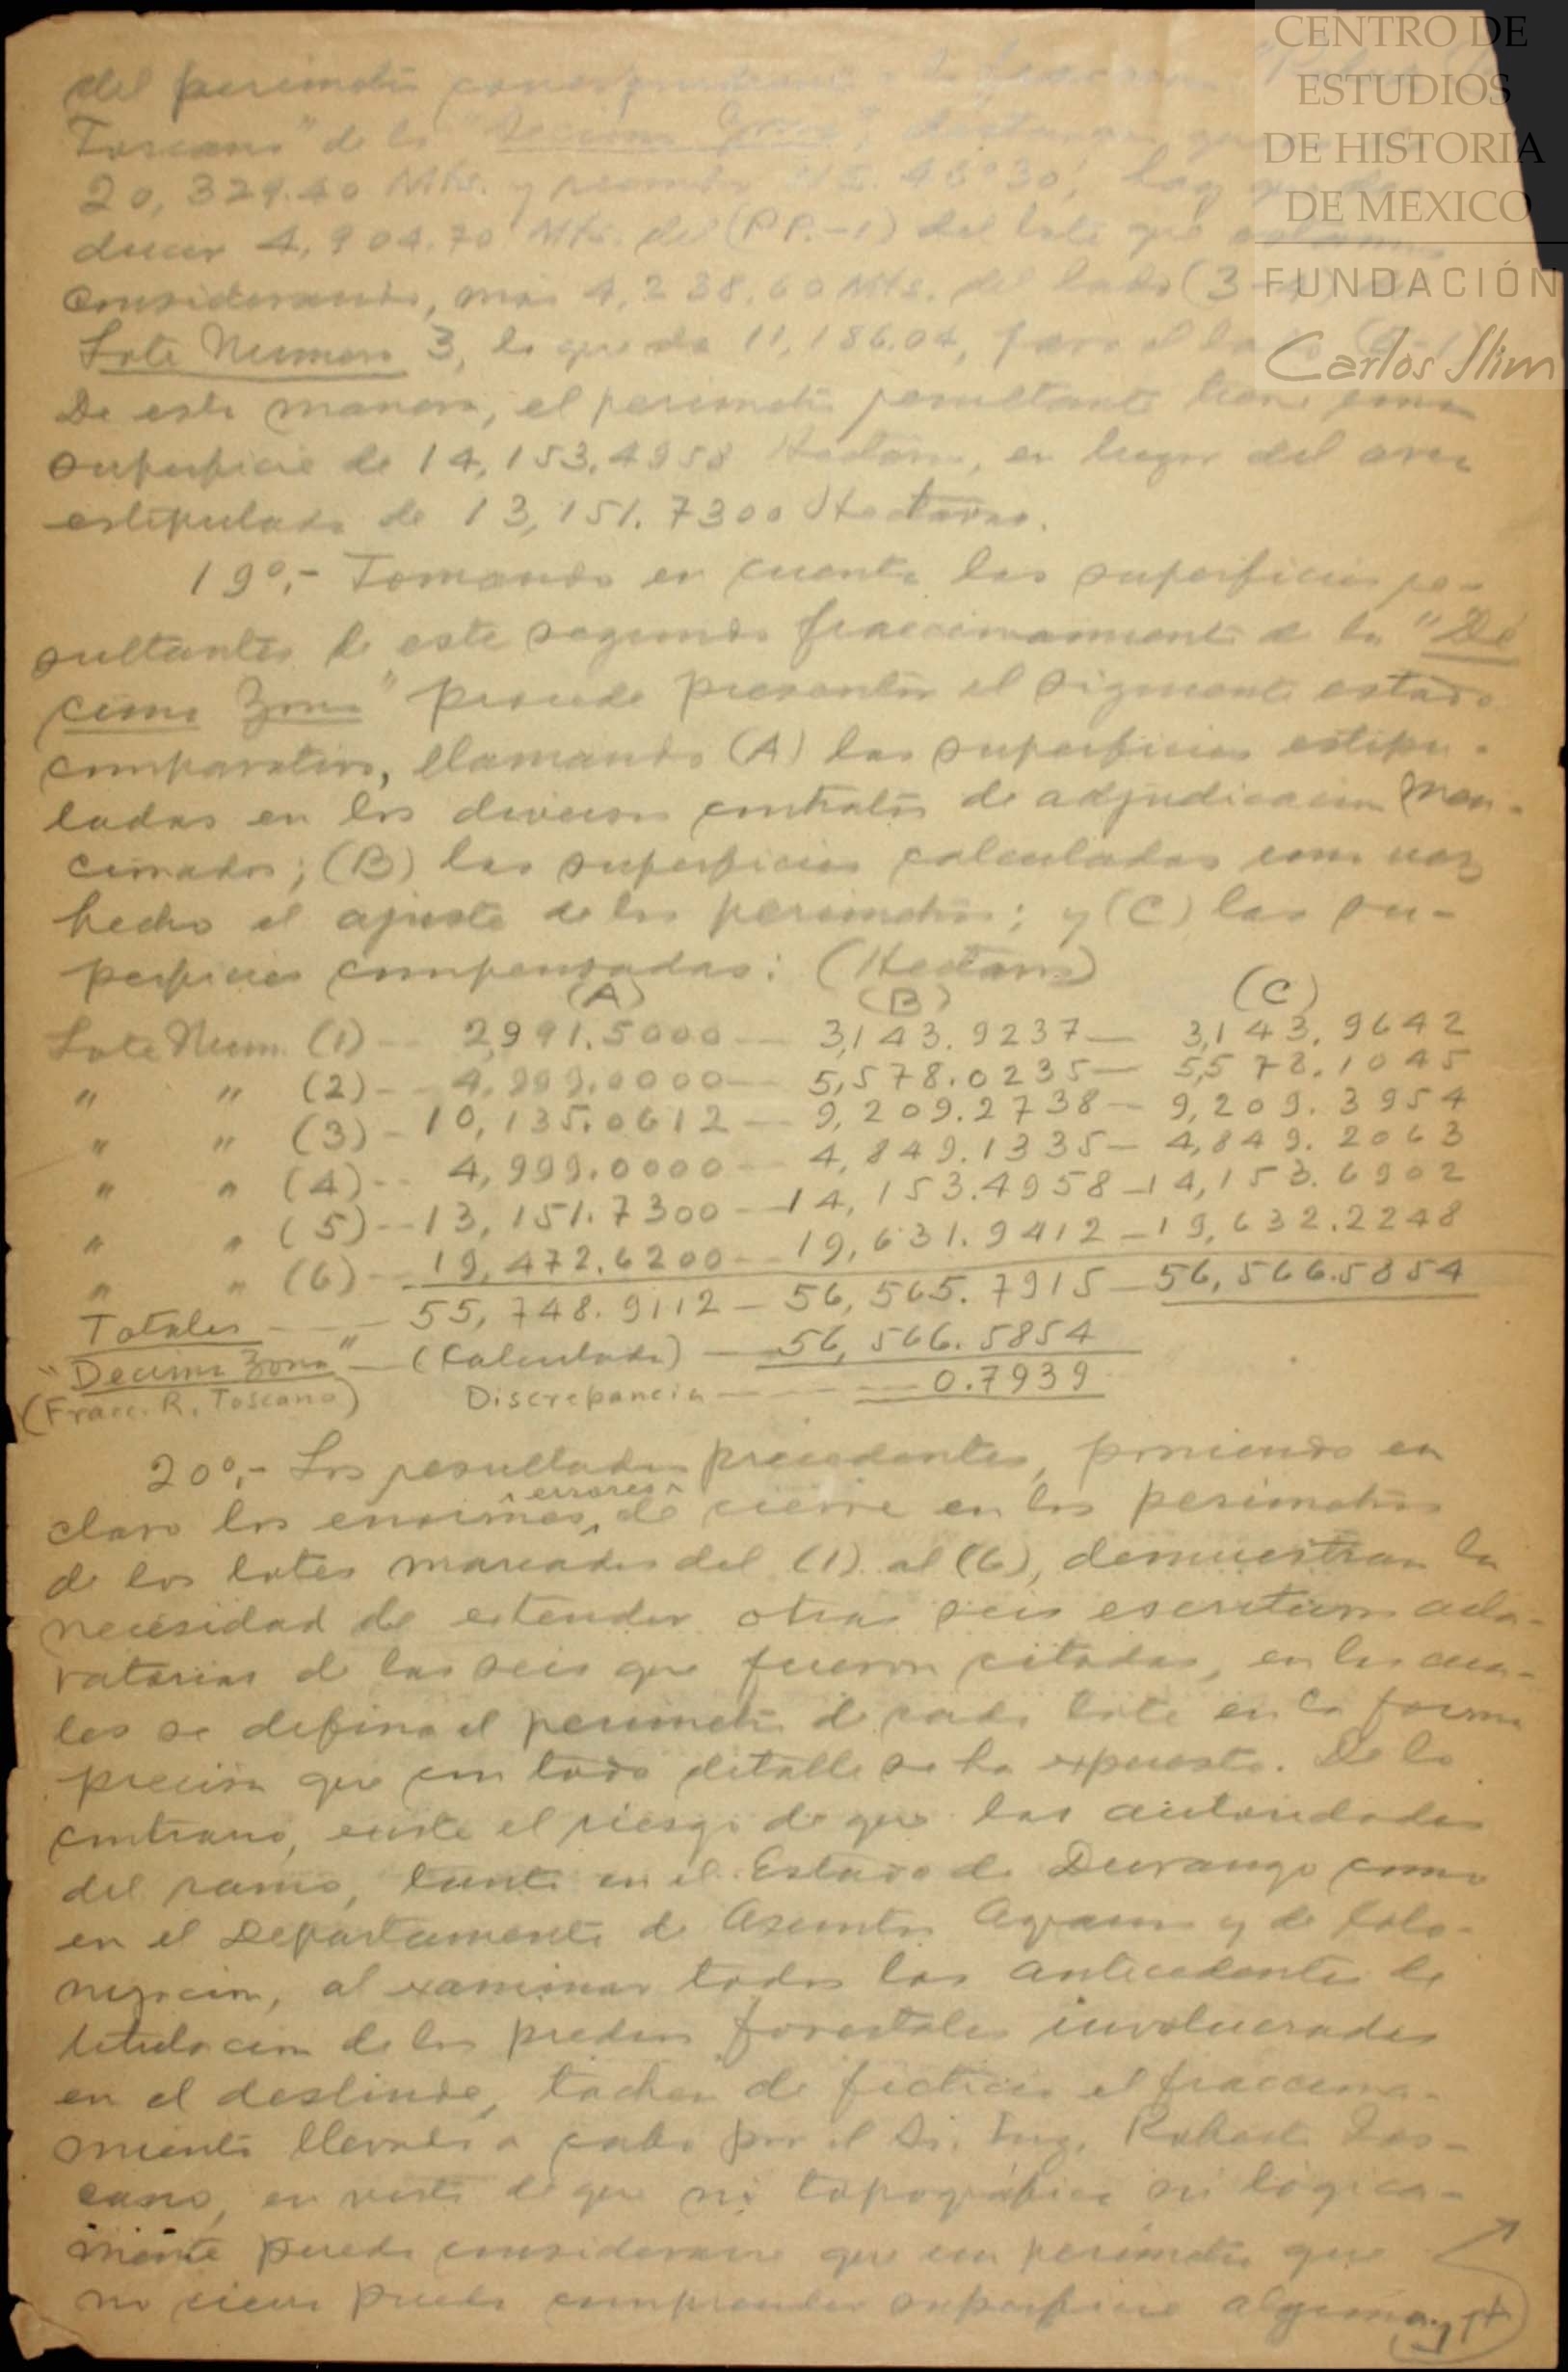 CENTRO DE
ESTUDIOS
DE HISTORIA
DE MEXICO
FUNDACIÓN
Carlos Slim
del perimetro
Toscano" de la "Decima Zona",
20,329.40 Mts. y rumbo 46°30', hay que de-
ducir 4,904.70 Mts. del (PP.-1) del lote que estamos
considerando, mas 4,238.60 Mts. del lado (3-
Lote Numero 3, lo que da 11,186.04, para el lado
De esta manera, el perimetro resultante tiene una
superficie de 14,153.4958 Hectars, en lugar del area
estipulada de 13,151.7300 Hectareas.
19º,- Tomando en cuenta las superficies re-
sultantes de este segundo fraccionamiento de la "De
cima Zona" procede presentar el siguiente estado
comparativo, llamando (A) las superficies estipu-
ladas en los diversos contratos de adjudicacion men-
cionados; (B) las superficies calculadas una vez
hecho el ajuste de los perimetros; y (C) las su-
perficies compensadas: (Hectars)
(A) (B) (C)
Lote Num. (1) -- 2,991.5000 -- 3,143.9237 -- 3,143.9642
" " (2) -- 4,999.0000 -- 5,578.0235 -- 5,578.1045
" " (3) - 10,135.0612 -- 9,209.2738 -- 9,209.3954
" " (4) -- 4,999.0000 -- 4,849.1335 - 4,849.2063
" " (5) -- 13,151.7300 - 14,153.4958 - 14,153.6902
" " (6) -- 19,472.6200 -- 19,631.9412 - 19,632.2248
Totales -- 55,748.9112 - 56,565.7915 - 56,566.5854
"Decima Zona" - (Calculada) - 56,566.5854
(Fracc. R. Toscano) Discrepancia -- 0.7939
20º,- Los resultados precedentes, poniendo en
claro los enormes errores de cierre en los perimetros
de los lotes marcados del (1) al (6), demuestran la
necesidad de extender otras seis escrituras acla-
ratorias de las seis que fueron citadas, en las cua-
les se defina el perimetro de cada lote en la forma
precisa que con todo detalle se ha expuesto. De lo
contrario, existe el riesgo de que las autoridades
del ramo, tanto en el Estado de Durango como
en el Departamento de Asuntos Agrarios y de Colo-
nizacion, al examinar todos los antecedentes de
titulacion de los predios forestales involucrados
en el deslinde, tachen de ficticio el fracciona-
miento llevado a cabo por el Sr. Ing. Roberto Tos-
cano, en vista de que ni topografica ni logica-
mente puede considerarse que un perimetro que
no cierra pueda comprender superficie alguna, y